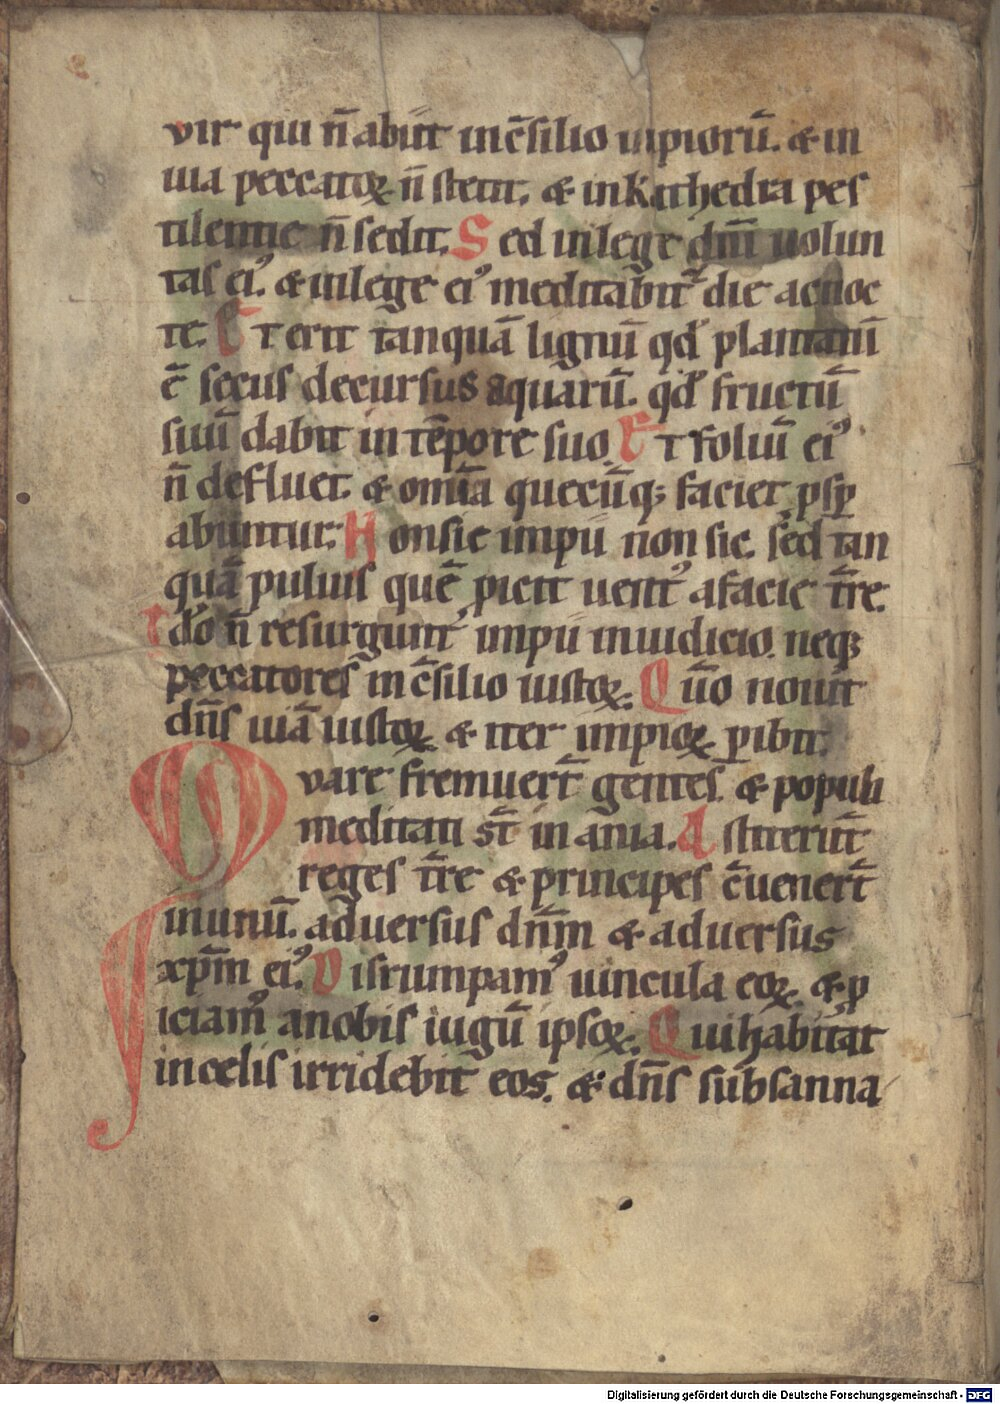 vir qui n̄ abiit in c̄silio inpiorū. & in
uia peccatoꝝ n̄ stetit. & in kathedra pes
tilentie n̄ sedit. Sed in lege dn̄i uolun
tas ei᷒. & in lege ei᷒ meditabit᷑ die ac noc
te. Et erit tanquā lignū qd̕ plantatū
ē secus decursus aquarū. qd̕ fructū
suū dabit in tēpore suo. Et foliū ei᷒
n̄ defluet. & om̄ia quecūq; faciet ꝓsꝑ
abuntur; Non sic impii non sic. sed tan
quā puluis quē ꝓicit uent᷒ a facie t̄re.
Ido n̄ resurgunt impii in iudicio. neq;
peccatores in c̄silio iustoꝝ. Qūo nouit
dn̄s uiā iustoꝝ & iter impioꝝ ꝑibit.
Qvare fremuert̄ gentes. & populi
meditati st̄ inania. Astiterūt
reges t̄re & principes c̄uenert̄
in unū. aduersus dn̄m & aduersus
xp̄m ei᷒. Disrumpam᷒ uincula eoꝝ. & ꝓ
iciam᷒ a nobis iugū ipsoꝝ. Qui habitat
in celis irridebit eos. & dn̄s subsanna
Digitalisierung gefördert durch die Deutsche Forschungsgemeinschaft - DFG